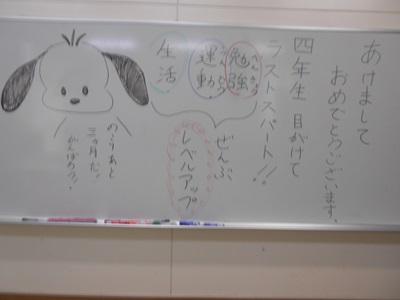 あけまして
おめでとうございます。
四年生 目がけて
ラストスパート!!
勉強
運動
生活
ぜんぶ
レベルアップ
のこりあと
三ヶ月だ。
がんばろう!